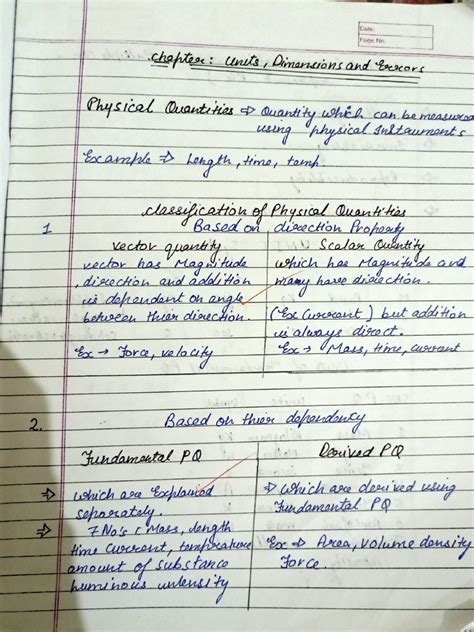 Date:
Page No.
Chapter: Units, Dimensions and Errors
Physical Quantities ⇒ Quantity which can be measured
using physical Instauments
Example ⇒ Length, time, temp.
Classification of Physical Quantities
1 Based on direction Property
vector quantity
vector has Magnitude
, direction and addition
is dependent on angle
between thier direction.
Ex → Force, velocity
Scalar Quantity
which has Magnitude and
many have direction.
(Ex Current) but addition
is always direct.
Ex → Mass, time, current
2. Based on thier dependency
Fundamental PQ
⇒ which are Explained
separately.
⇒ 7 No's : Mass, length
time current, temperature
amount of substance
luminous intensity
Derived PQ
⇒ which are derived using
Fundamental PQ
Ex ⇒ Area, volume density
Force.